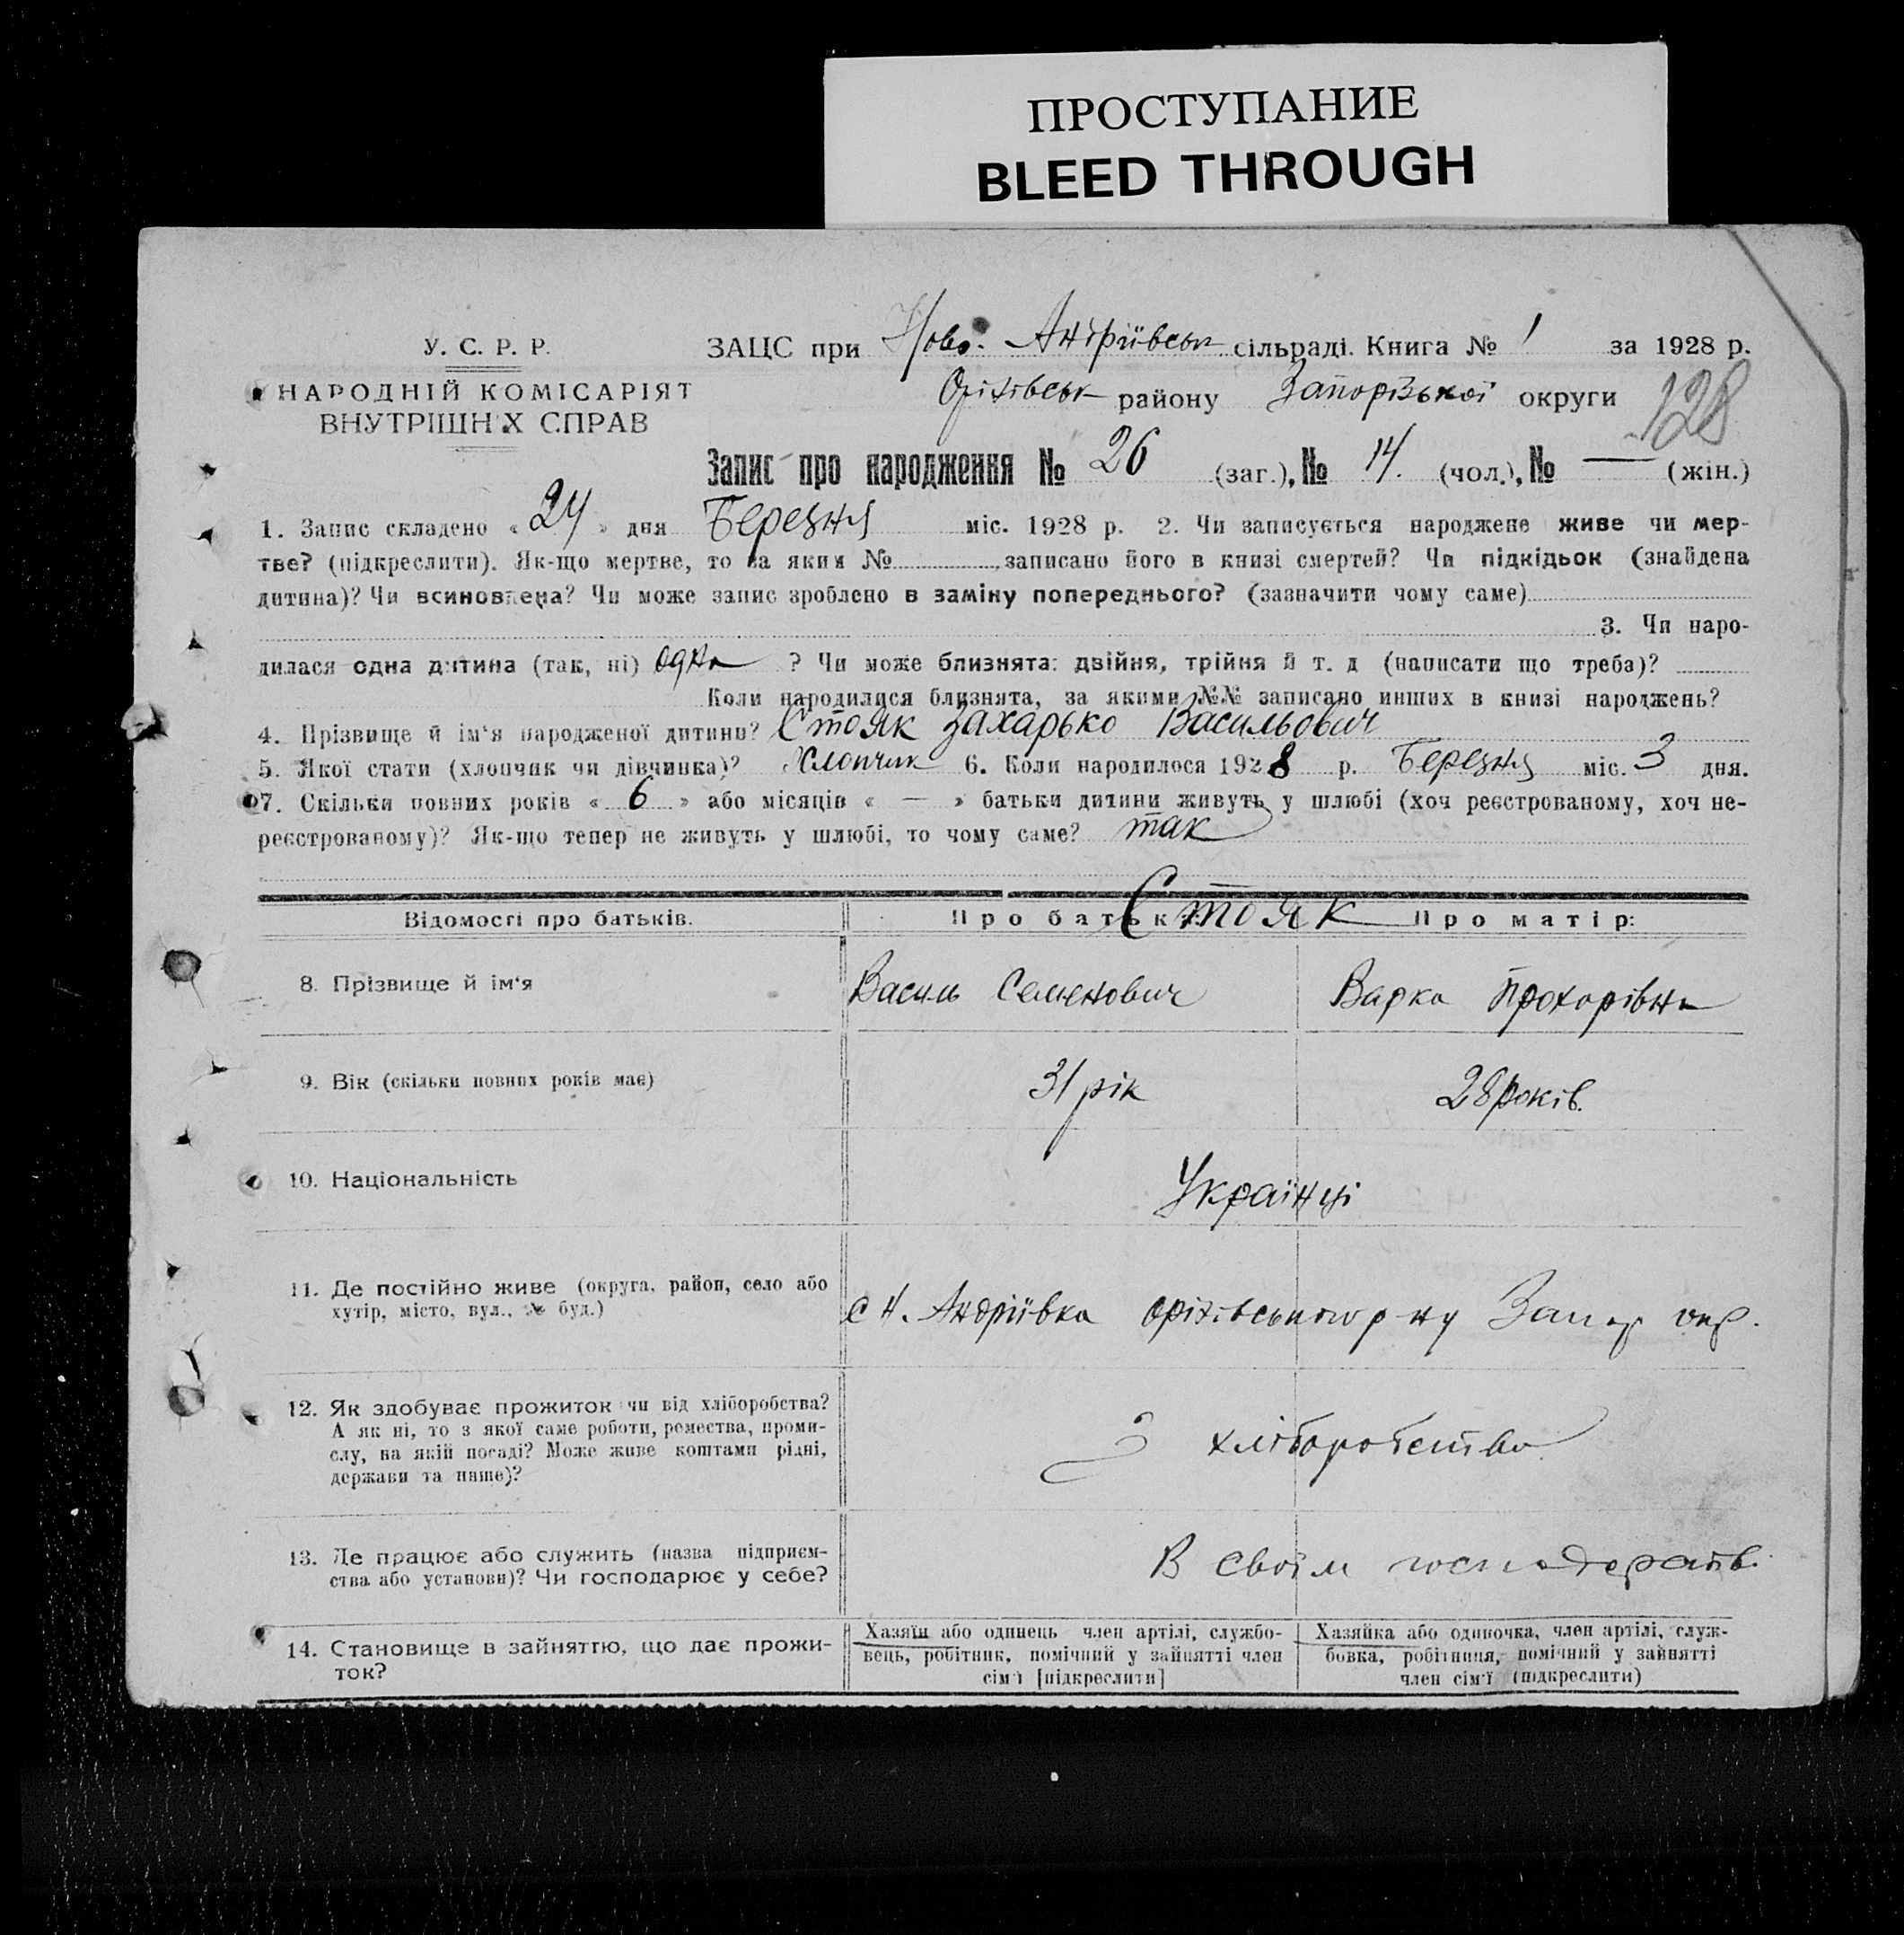 ПРОСТУПАНИЕ
BLEED THROUGH
У. С. Р. Р.
НАРОДНІЙ КОМІСАРІЯТ
ВНУТРІШН Х СПРАВ
ЗАЦС при Ново. Андріївськ сільраді. Книга № 1 за 1928 р.
Оріхівськ району Запорізької округи
128
Запис про народження № 26 (заг.), № 14. (чол.), № — (жін.)
1. Запис складено « 24 » дня Березня міс. 1928 р. 2. Чи записується народжене живе чи мер-
тве? (підкреслити). Як-що мертве, то за яким № записано його в книзі смертей? Чи підкідьок (знайдена
дитина)? Чи всиновлена? Чи може запис зроблено в заміну попереднього? (зазначити чому саме)
3. Чи наро-
дилася одна дитина (так, ні) одна ? Чи може близнята: двійня, трійня й т. д (написати що треба)?
Коли народилися близнята, за якими №№ записано инших в книзі народжень?
4. Прізвище й ім'я народженої дитини? Стояк Захарько Васильович
5. Якої стати (хлопчик чи дівчинка)? Хлопчик 6. Коли народилося 1928 р. Березня міс. 3 дня.
7. Скільки повних років « 6 » або місяців « — » батьки дитини живуть у шлюбі (хоч реєстрованому, хоч не-
реєстрованому)? Як-що тепер не живуть у шлюбі, то чому саме? так
Відомості про батьків. Про батька Стояк Про матір:
8. Прізвище й ім'я Василь Семенович Варка Прохорівна
9. Вік (скільки повних років має) 31 рік 28 років.
10. Національність Українці
11. Де постійно живе (округа, район, село або
хутір, місто, вул., № буд.) с Н. Андріївка Оріхівського р-ну Запор окр.
12. Як здобуває прожиток чи від хліборобства?
А як ні, то з якої саме роботи, ремества, проми-
слу, на якій посаді? Може живе коштами рідні,
держави та инше)?
З хліборобства
13. Де працює або служить (назва підприєм-
ства або установи)? Чи господарює у себе?
В своїм господарств.
14. Становище в зайняттю, що дає прожи-
ток?
Хазяїн або одинець член артілі, службо-
вець, робітник, помічний у зайнятті член
сім'ї [підкреслити]
Хазяйка або одиночка, член артілі, служ-
бовка, робітниця, помічний у зайнятті
член сім'ї (підкреслити)